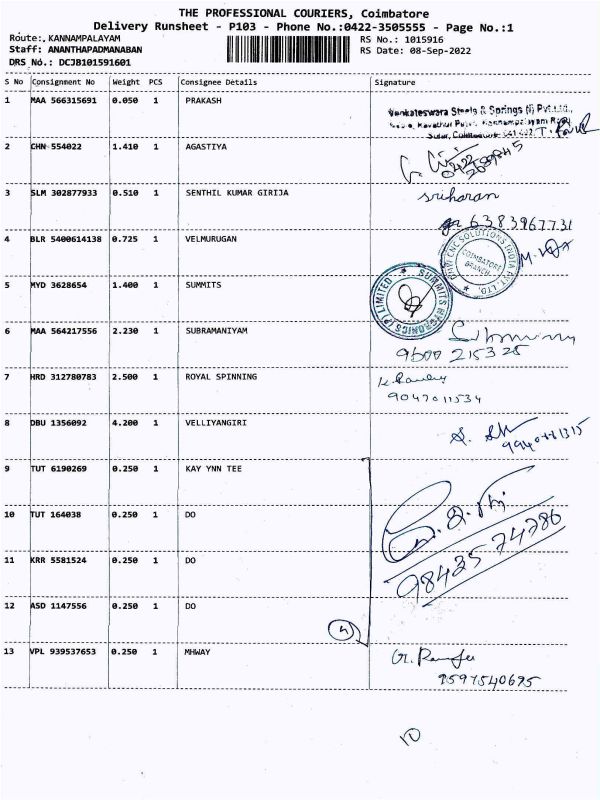 THE PROFESSIONAL COURIERS, Coimbatore
Delivery Runsheet - P103 - Phone No.:0422-3505555 - Page No.:1
Route:, KANNAMPALAYAM RS No.: 1015916
Staff: ANANTHAPADMANABAN RS Date: 08-Sep-2022
DRS No.: DCJB101591601
S No Consignment No Weight PCS Consignee Details Signature
1 MAA 566315691 0.050 1 PRAKASH
Venkateswara Steels & Springs (I) Pvt.Ltd.,
2 CHN 554022 1.410 1 AGASTIYA
3 SLM 302877933 0.510 1 SENTHIL KUMAR GIRIJA sriharan
6383967731
4 BLR 5400614138 0.725 1 VELMURUGAN
CNC SOLUTIONS INDIA PVT. LTD.
COIMBATORE
BRANCH
5 MYD 3628654 1.400 1 SUMMITS
SUMMITS HYGRONICS (P) LIMITED
6 MAA 564217556 2.230 1 SUBRAMANIYAM
9600 215325
7 HRD 312780783 2.500 1 ROYAL SPINNING
9047011534
8 DBU 1356092 4.200 1 VELLIYANGIRI
9 TUT 6190269 0.250 1 KAY YNN TEE
10 TUT 164038 0.250 1 DO
98425 74786
11 KRR 5581524 0.250 1 DO
12 ASD 1147556 0.250 1 DO
4
13 VPL 939537653 0.250 1 MHWAY
9597540695